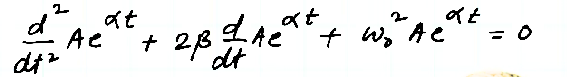 d²/dt² Ae^{αt} + 2β d/dt Ae^{αt} + ω₀² Ae^{αt} = 0